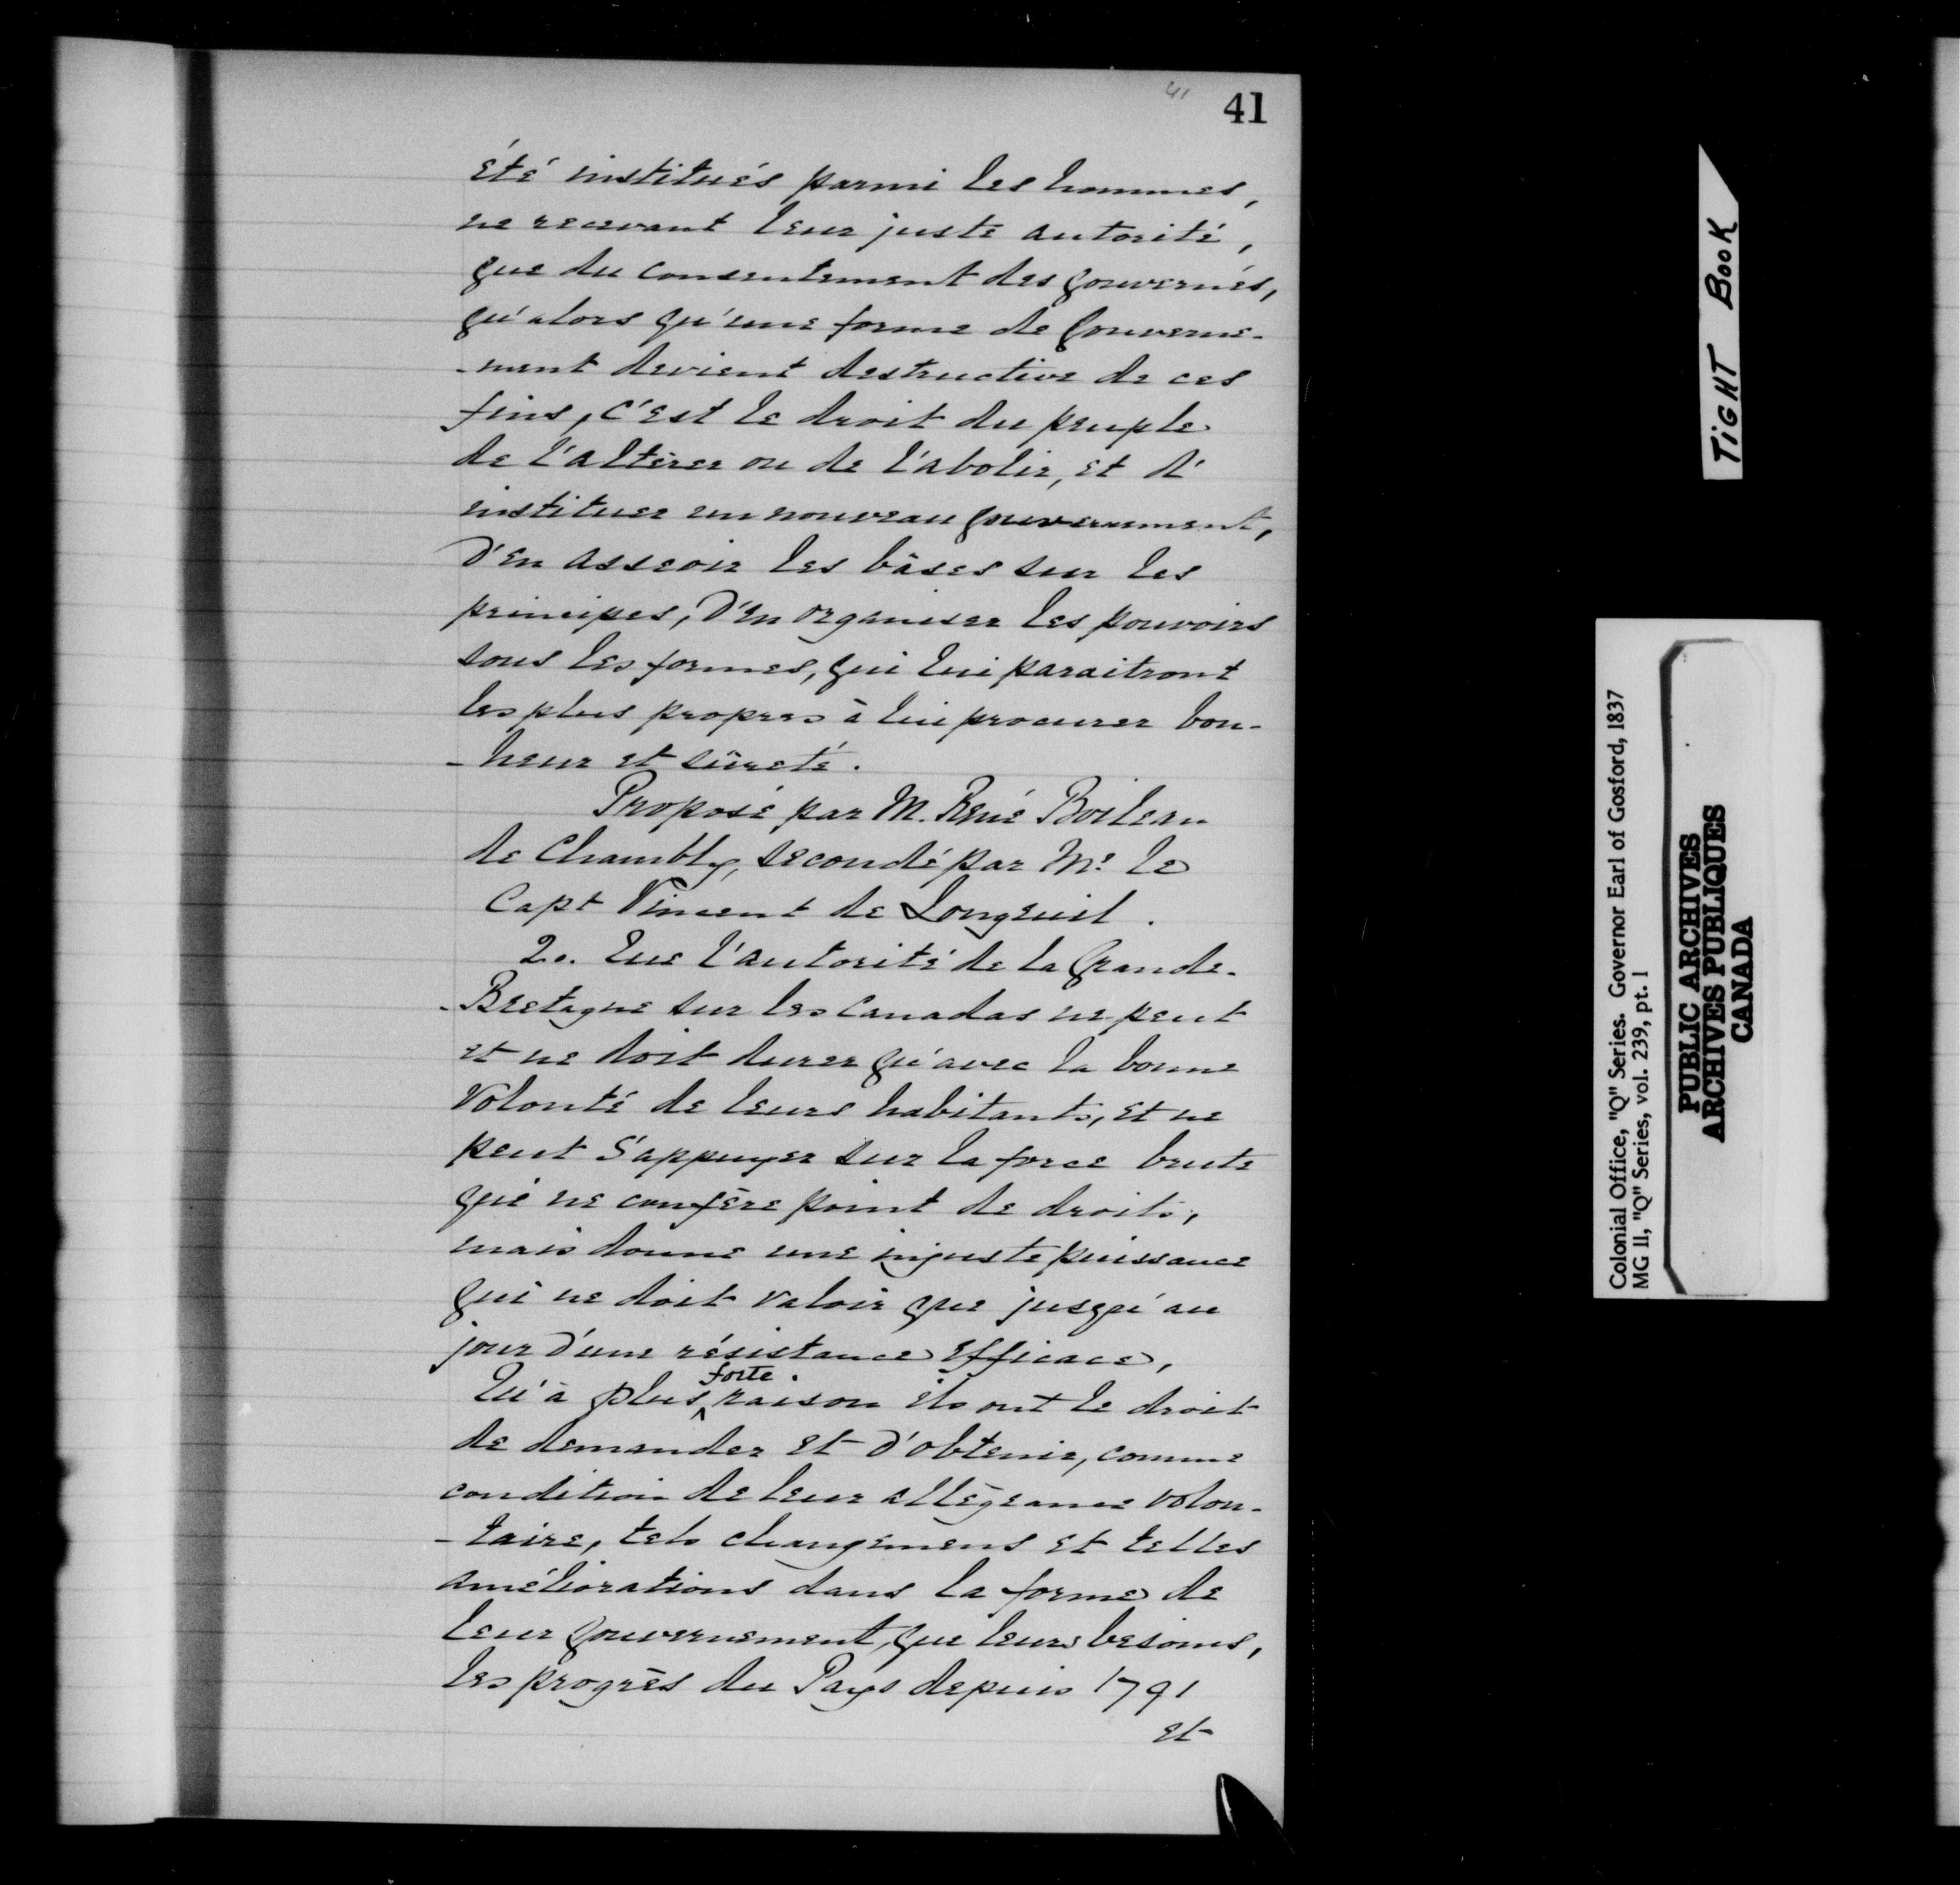 41
41
été institués parmi les hommes,
ne recevant leur juste autorité,
que du consentement des gouvernés,
qu'alors qu'une forme de gouverne-
-ment devient destructive de ces
fins, c'est le droit du peuple
de l'altérer ou de l'abolir, et d'
instituer un nouveau gouvernement,
d'en asseoir les bâses sur les
principes, d'en organiser les pouvoirs
sous les formes, qui lui paraitront
les plus propres à lui procurer bon-
-heur et sûreté.
Proposé par M. René Boileau
de Chambly, secondé par Mr. le
Capt Vincent de Longeuil.
2o. Que l'autorité de la Grande-
-Bretagne sur les Canadas ne peut
et ne doit durer qu'avec la bonne
volonté de leurs habitants, et ne
peut s'appuyer sur la force brute
qui ne confère point de droits,
mais donne une injuste puissance
qui ne doit valoir que jusqu'au
jour d'une résistance efficace,
Qu'à plus forte raison ils ont le droit
de demander et d'obtenir, comme
condition de leur allégeance volon-
-taire, tels changemens et telles
améliorations dans la forme de
leur gouvernement, que leurs besoins,
les progrès du Pays depuis 1791
et
TIGHT BOOK
Colonial Office, "Q" Series. Governor Earl of Gosford, 1837
MG 11, "Q" Series, vol. 239, pt. 1
PUBLIC ARCHIVES
ARCHIVES PUBLIQUES
CANADA